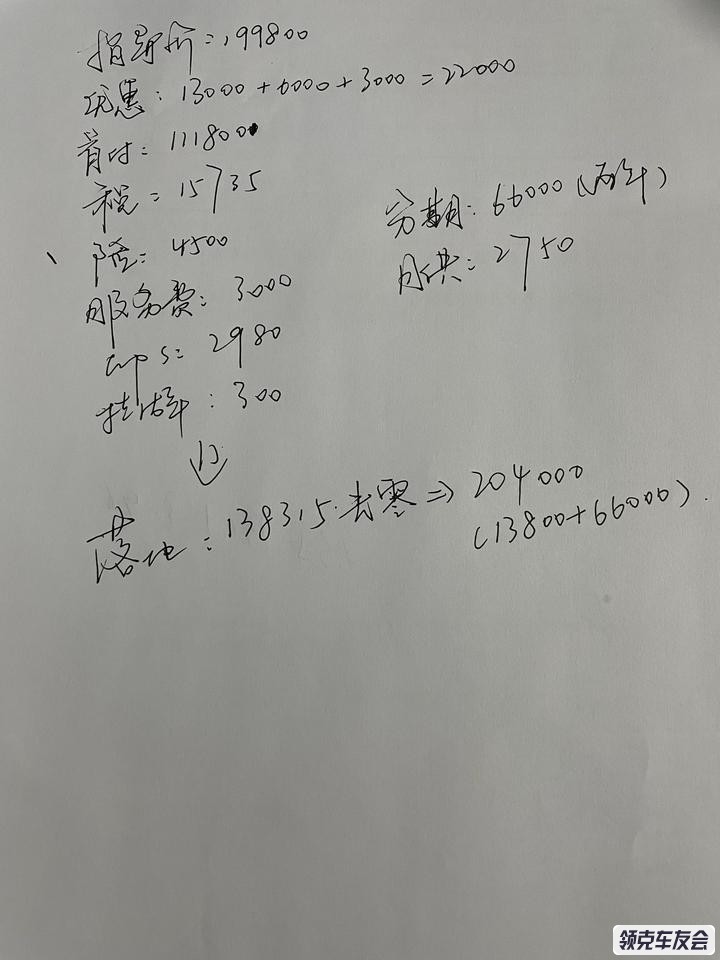 指导价:199800
优惠:13000+6000+3000=22000
首付:111800
税:15735
险:4500
服务费:3000
gps:2980
挂牌:300
落地:138315.去零⇒204000
(13800+66000).
分期:66000(两年)
月供:2750
领克车友会